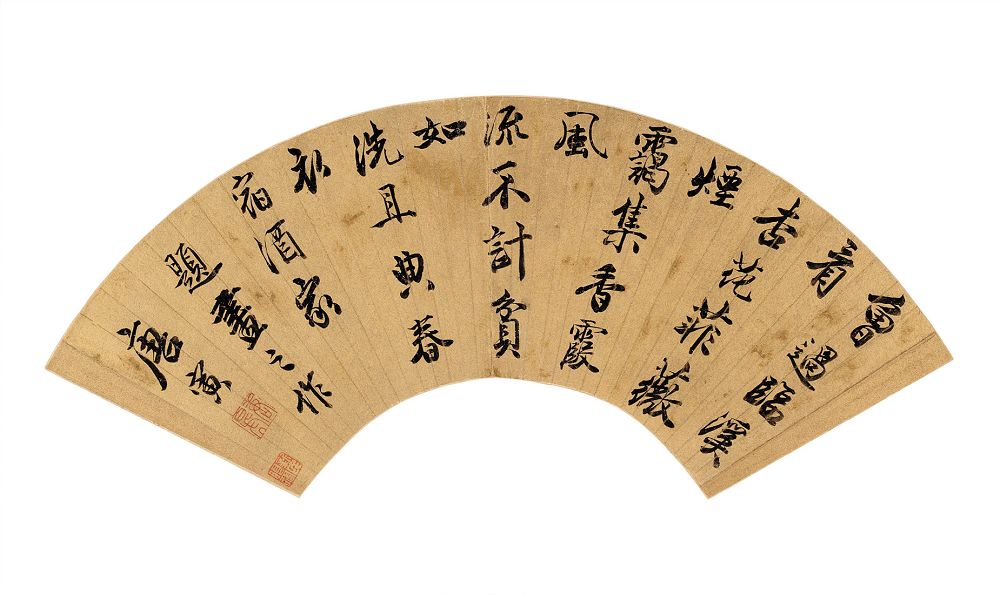 曾過臨溪
看
杏花菲薇
煙
靄集香霞
風
流不計貧
如
洗且典春
衣
宿酒家
題畫之作
唐寅